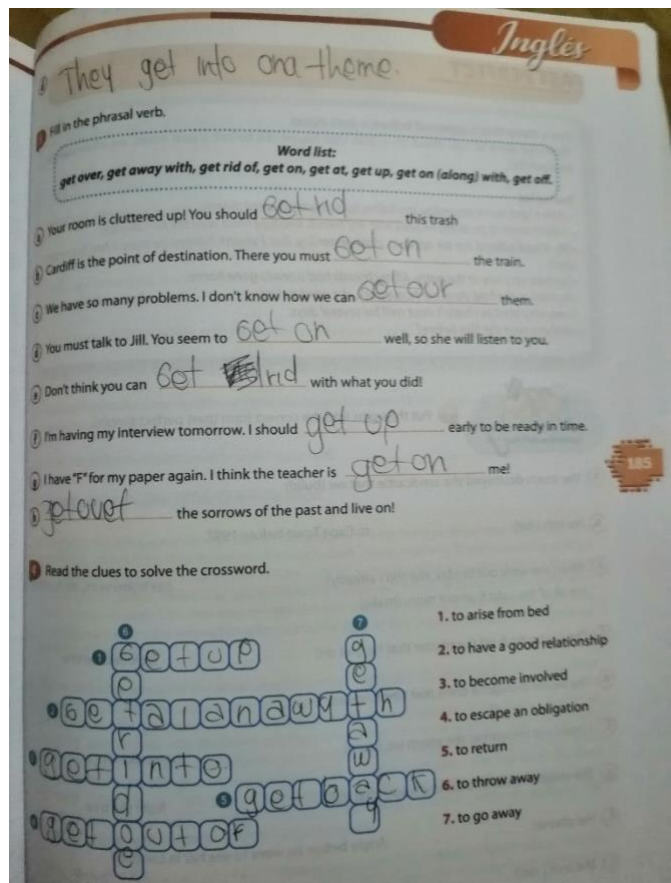 Inglés
They get into ona theme.
Fill in the phrasal verb.
Word list:
get over, get away with, get rid of, get on, get at, get up, get on (along) with, get off.
a Your room is cluttered up! You should Get rid this trash
b Cardiff is the point of destination. There you must Get on the train.
c We have so many problems. I don't know how we can Get our them.
d You must talk to Jill. You seem to Get on well, so she will listen to you.
e Don't think you can Get rid with what you did!
f I'm having my interview tomorrow. I should get up early to be ready in time.
g I have "F" for my paper again. I think the teacher is get on me!
h get over the sorrows of the past and live on!
185
Read the clues to solve the crossword.
6
7
1 Getup
2 Getalanawyth
getinto
5 getback
getoutof
1. to arise from bed
2. to have a good relationship
3. to become involved
4. to escape an obligation
5. to return
6. to throw away
7. to go away